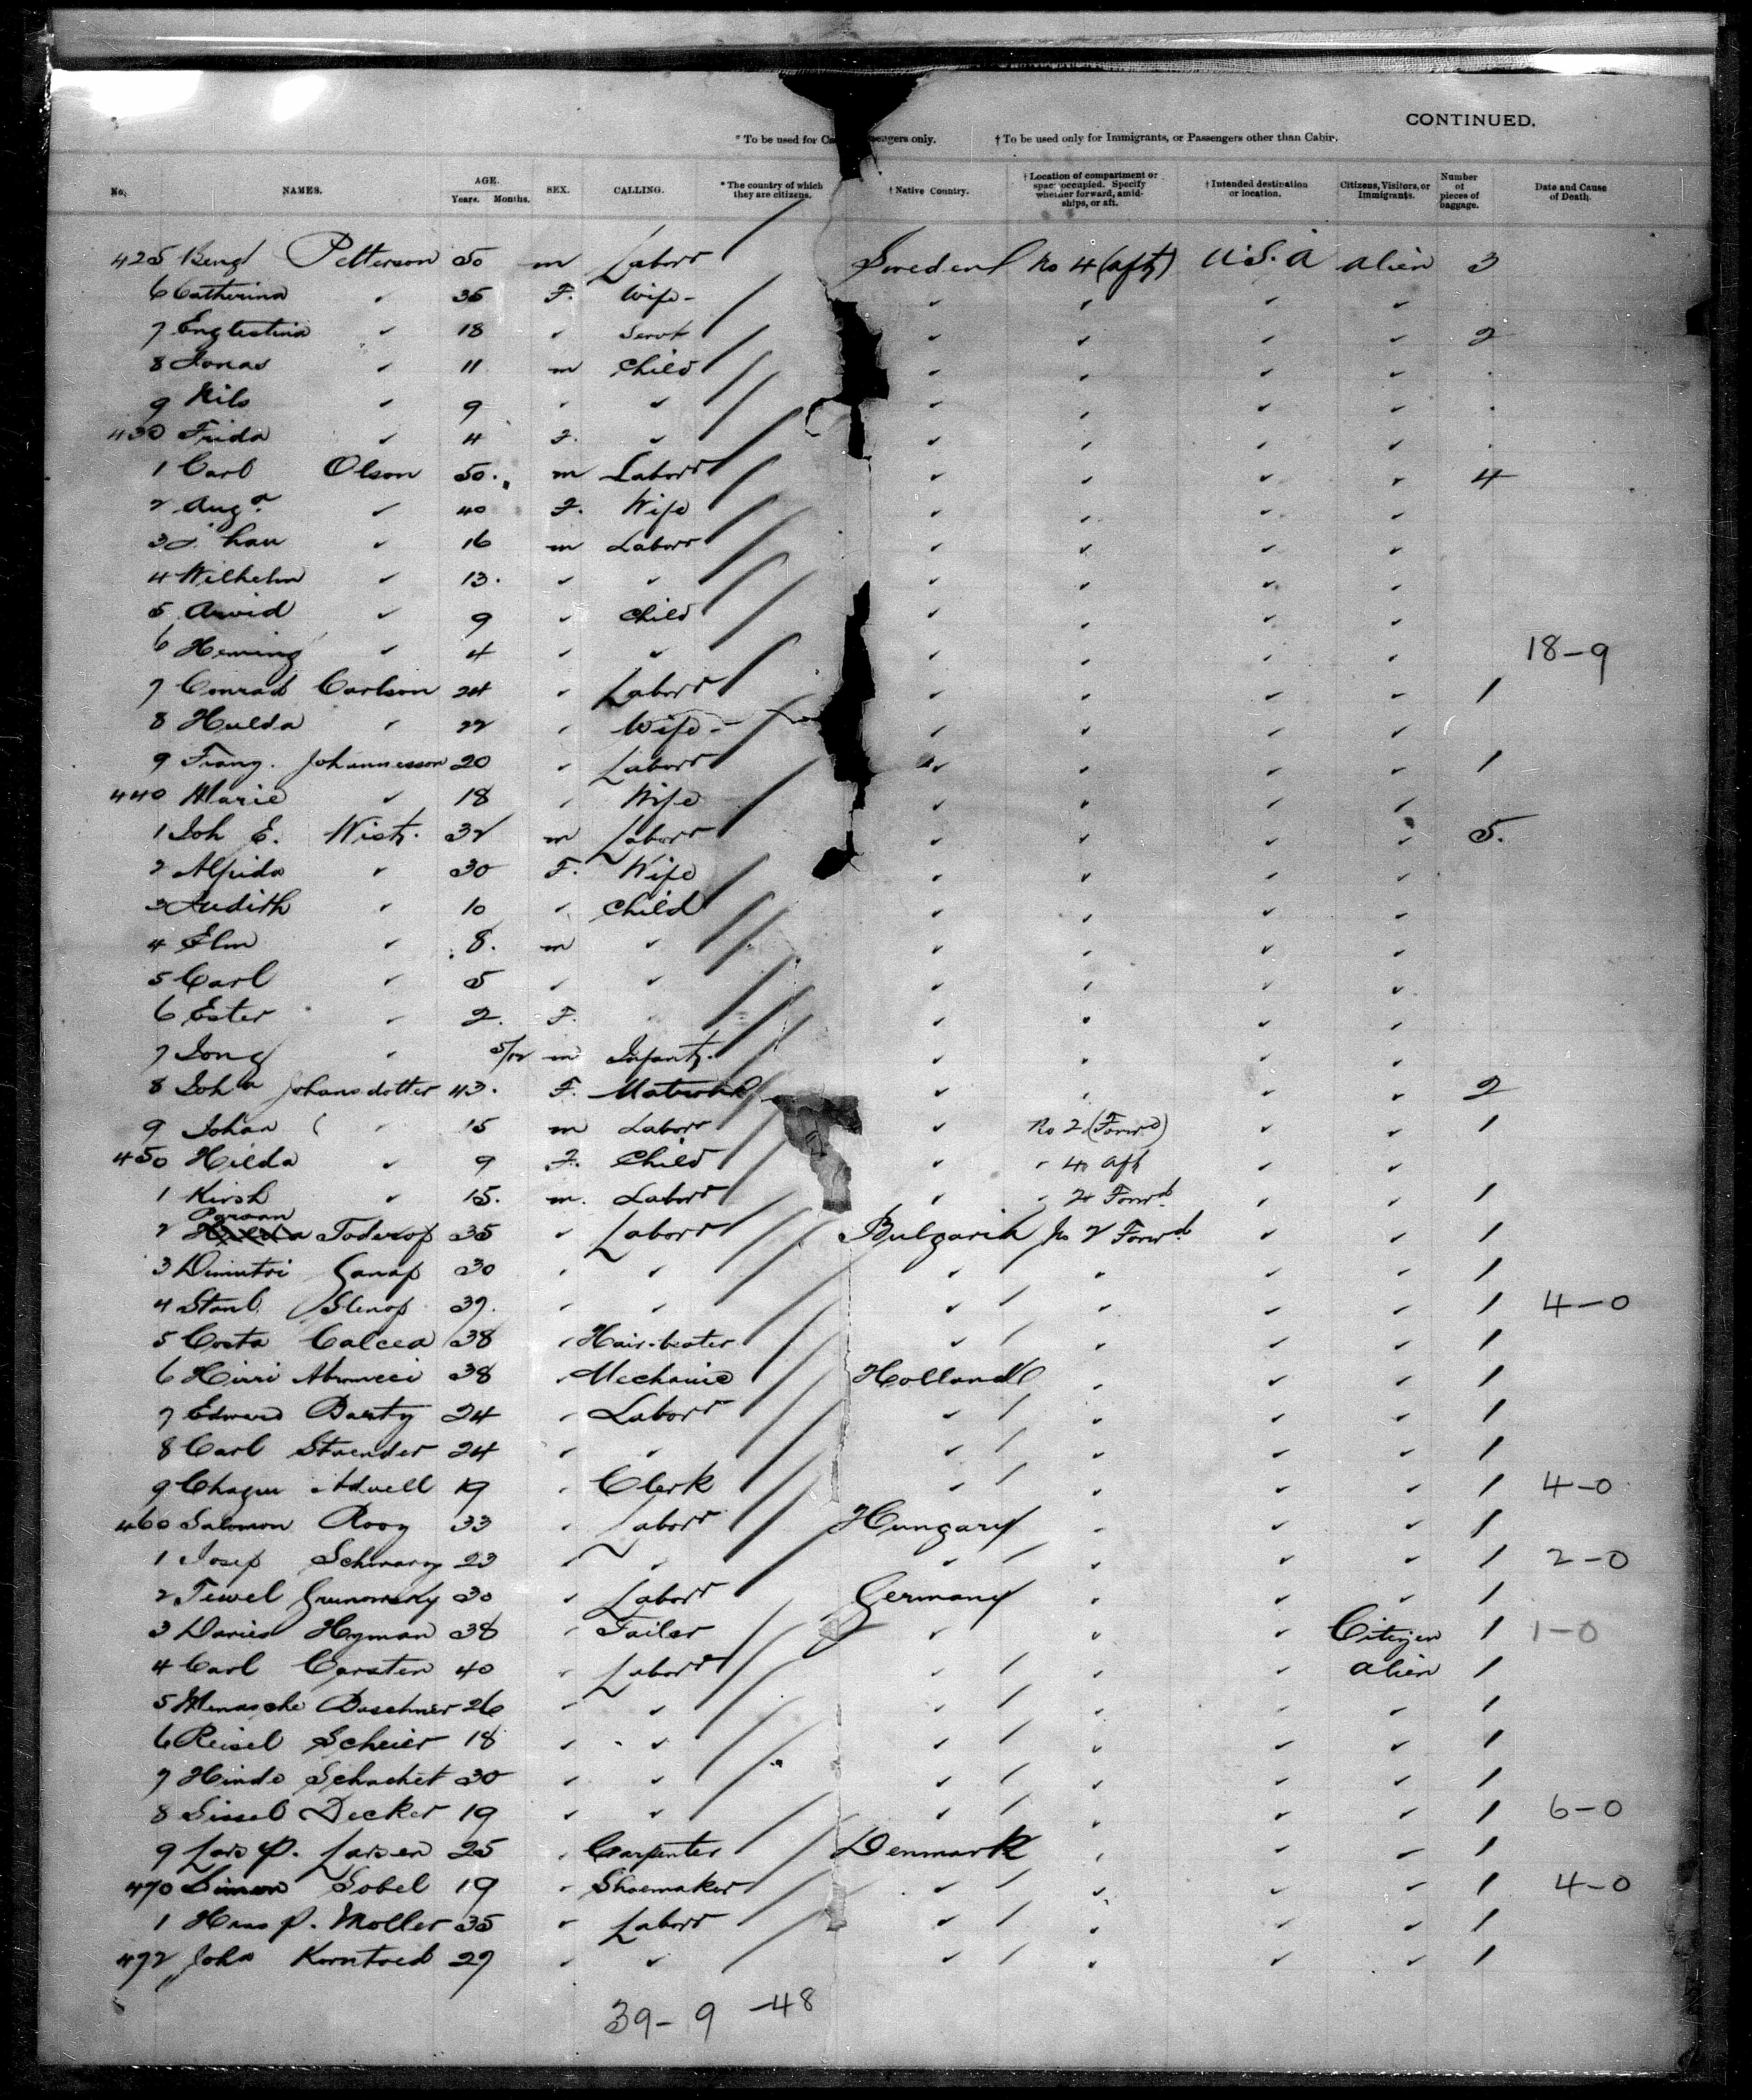 CONTINUED.
* To be used for Ca ssengers only. † To be used only for Immigrants, or Passengers other than Cabin.
No. NAMES. AGE. Years. Months. SEX. CALLING. * The country of which they are citizens. † Native Country. † Location of compartment or space occupied. Specify whether forward, amidships, or aft. † Intended destination or location. Citizens, Visitors, or Immigrants. Number of pieces of baggage. Date and Cause of Death.
425 Bengt Petterson 50 m Laborr Sweden No 4 (aft) U.S.A alien 3
6 Catherina " 35 F. Wife - " " " "
7 Englestina " 18 " Servt " " " " 2
8 Jonas " 11 m Child " " " "
9 Nils " 9 " " " " " "
430 Frida " 4 F. " " " " "
1 Carl Olson 50. m Laborr " " " " 4
2 Auga " 40 F. Wife " " " "
3 J han " 16 m Laborr " " " "
4 Wilhelm " 13. " " " " " "
5 Arvid " 9 " Child " " " "
6 Heming " 4 " " " " " " 18-9
7 Conrad Carlson 24 " Laborr " " " " 1
8 Hulda " 22 " Wife - " " " "
9 Franz. Johannesson 20 " Laborr " " " " 1
440 Marie " 18 " Wife " " " "
1 Joh E. 32 m Laborr " " " " 5.
2 Alfrida " 30 F. Wife " " " "
3 Judith " 10 " Child " " " "
4 Elm " 8. m " " " " "
5 Carl " 5 " " " " " "
6 Ester " 2. F. " " " "
7 " 5/12 m Infant. " " " "
8 Joha Johansdotter 43. F. " " " " 2
9 Johan " 15 m Laborr " No 2 (Forwd) " " 1
450 Hilda " 9 F. Child " " 4 aft " "
1 " 15. m. Laborr " " 2 Forwd " " 1
2 Parvan Toderof 35 " Laborr Bulgaria No 2 Forwd " " 1
3 Dimitri Ganaf 30 " " " " " " 1
4 39. " " " " " " 1 4-0
5 Costa Calcea 38 " Hair-beater " " " " 1
6 38 " Mechanic Holland " " " 1
7 Edward 24 " Laborr " " " " 1
8 Carl Staender 24 " " " " " " 1
9 19 " Clerk " " " " 1 4-0
460 Salomon 33 " Laborr Hungary " " " 1
1 Josef Schwarz 23 " " " " " " 1 2-0
2 30 " Laborr Germany " " " 1
3 Hyman 38 " Tailor " " " Citizen 1 1-0
4 Carl Carsten 40 " Laborr " " " alien 1
5 Menasche 26 " " " " " " 1
6 Reisel Scheier 18 " " " " " " 1
7 Hinde Schachet 30 " " " " " " 1
8 Decker 19 " " " " " " 1 6-0
9 Lars P. Larsen 25 " Carpenter Denmark " " " 1
470 Simon Sobel 19 " Shoemaker " " " " 1 4-0
1 Hans P. Moller 35 " Laborr " " " " 1
472 John 29 " " " " " " 1
39-9 -48